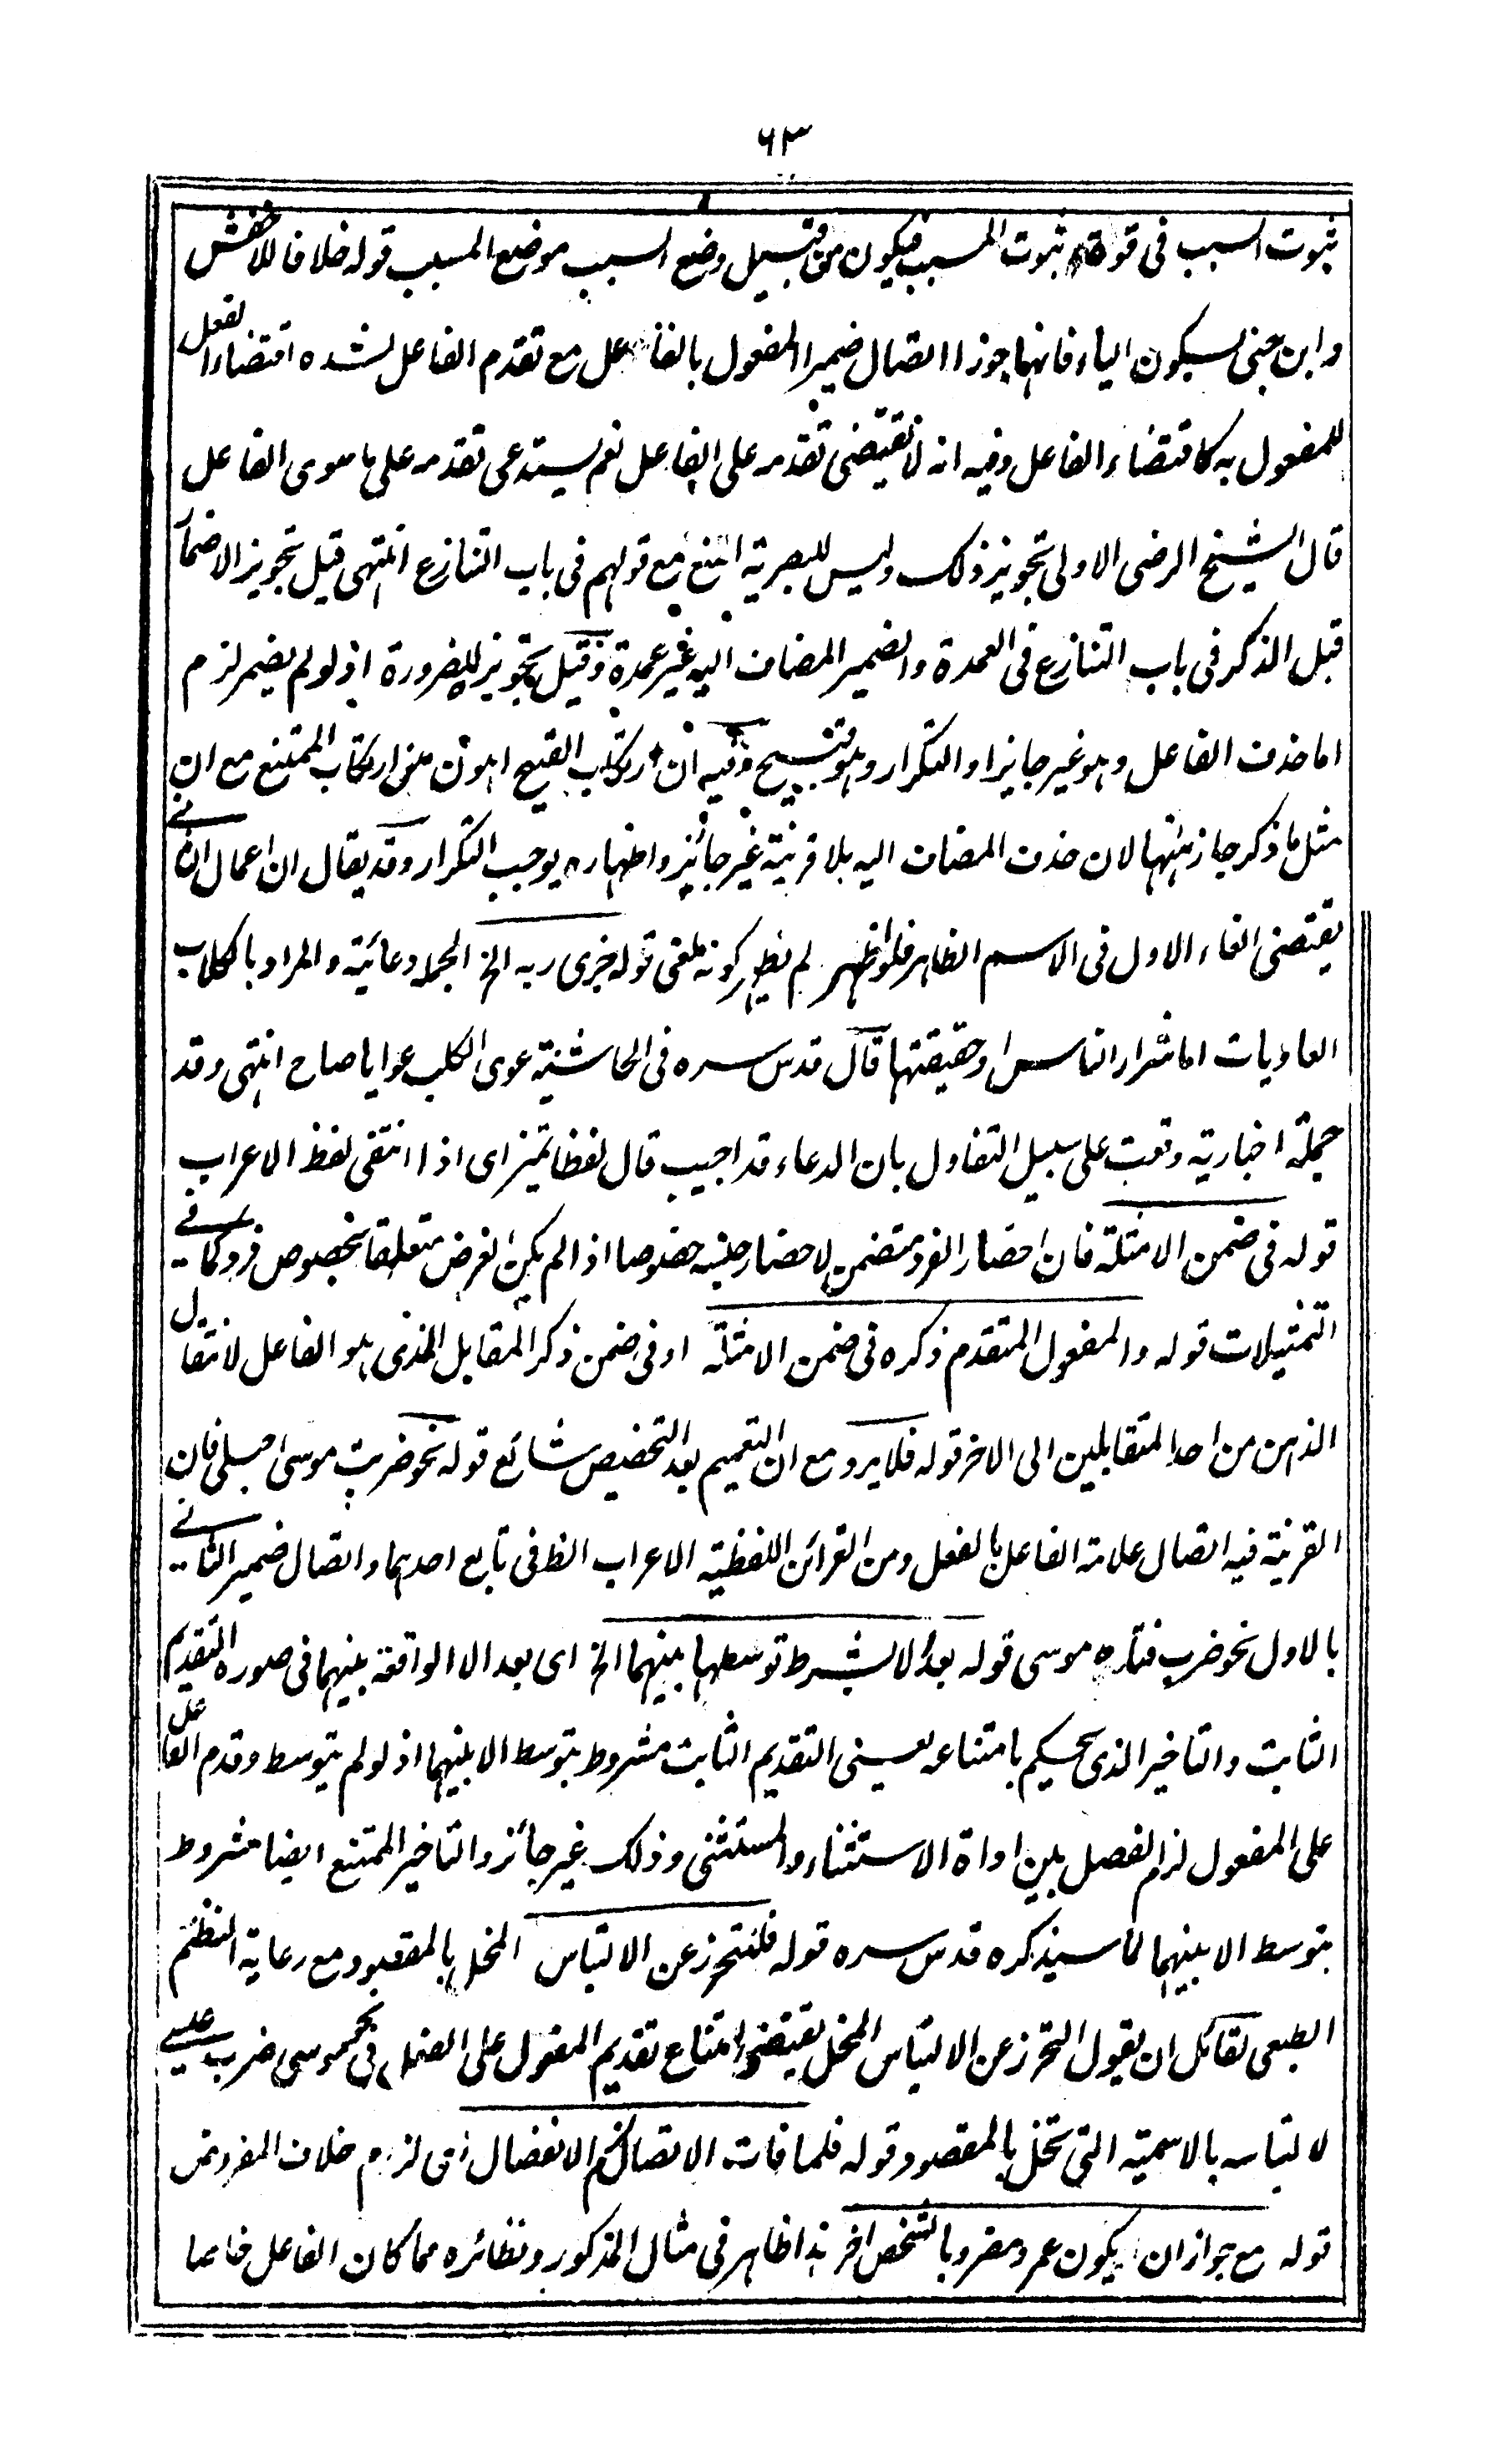 ٦٣
ثبوت السبب فى قوة ثبوت المسبب فيكون من قبيل وضع السبب موضع المسبب قوله خلافا للاخفش
وابن جنى بسكون الياء فانهما جوزا اتصال ضمير المفعول بالفاعل مع تقدم الفاعل لشدة اقتضاء الفعل
للمفعول به كاقتضاء الفاعل وفيه انه لا يقتضى تقدمه على الفاعل نعم يستدعى تقدمه على ما سوى الفاعل
قال الشيخ الرضى الاولى تجويز ذلك وليس للبصرية المنع مع قولهم فى باب التنازع انتهى قيل تجويز الاضمار
قبل الذكر فى باب التنازع فى العمدة والضمير المضاف اليه غير عمدة وقيل تجويز للضرورة اذ لو لم يضمر لزم
اما حذف الفاعل وهو غير جايز او التكرار وهو قبيح وفيه ان ارتكاب القبيح اهون من ارتكاب الممتنع مع ان
مثل ما ذكر جاز ههنا لان حذف المضاف اليه بلا قرينة غير جائز واظهاره يوجب التكرار وقد يقال ان اعمال الثانى
يقتضى الغاء الاول فى الاسم الظاهر فلو اظهر لم يظهر كونه ملغى قوله جزى ربه الخ الجملة دعائية والمراد بالكلاب
العاويات اما شرار الناس او حقيقتها قال قدس سره فى الحاشية عوى الكلب عوا يا صاح انتهى وقد
جملة اخبارية وقعت على سبيل التفاول بان الدعاء قد اجيب قال لفظا تميز اى اذا انتفى لفظ الاعراب
قوله فى ضمن الامثلة فان احضار الفرد متضمن لاحضار جنسه خصوصا اذا لم يكن الغرض متعلقا بخصوص فرد كما فى
التمثيلات قوله والمفعول المتقدم ذكره فى ضمن الامثلة او فى ضمن ذكر المقابل الذى هو الفاعل لانتقال
الذهن من احد المتقابلين الى الاخر قوله فلا يرد مع ان التعميم بعد التخصيص شائع قوله نحو ضربت موسى حبلى فان
القرينة فيه اتصال علامة الفاعل بالفعل ومن القرائن اللفظية الاعراب الظ فى تابع احدهما واتصال ضمير الثانى
بالاول نحو ضرب فتاه موسى قوله بعد الا بشرط توسطها بينهما الخ اى بعد الا الواقعة بينهما فى صورة التقديم
الثابت والتاخير الذى يحكم بامتناعه يعنى التقديم الثابت مشروط بتوسط الا بينهما اذ لو لم يتوسط وقدم الفاعل
على المفعول لزم الفصل بين اداة الاستثناء والمستثنى وذلك غير جائز والتاخير الممتنع ايضا مشروط
بتوسط الا بينهما لما سيذكره قدس سره قوله فللتحرز عن الالتباس المخل بالمقصود مع رعاية النظم
الطبعى لقائل ان يقول التحرز عن الالتباس المخل يقتضى امتناع تقديم المفعول على الفعل فى نحو موسى ضرب عيسى
لالتباسه بالاسمية التى تخل بالمقصود قوله فلمنافات الاتصال الانفصال لزم خلاف المفروض
قوله مع جواز ان يكون عمرو مضروبا لشخص اخر هذا ظاهر فى مثال المذكور ونظائره مما كان الفاعل خاصا